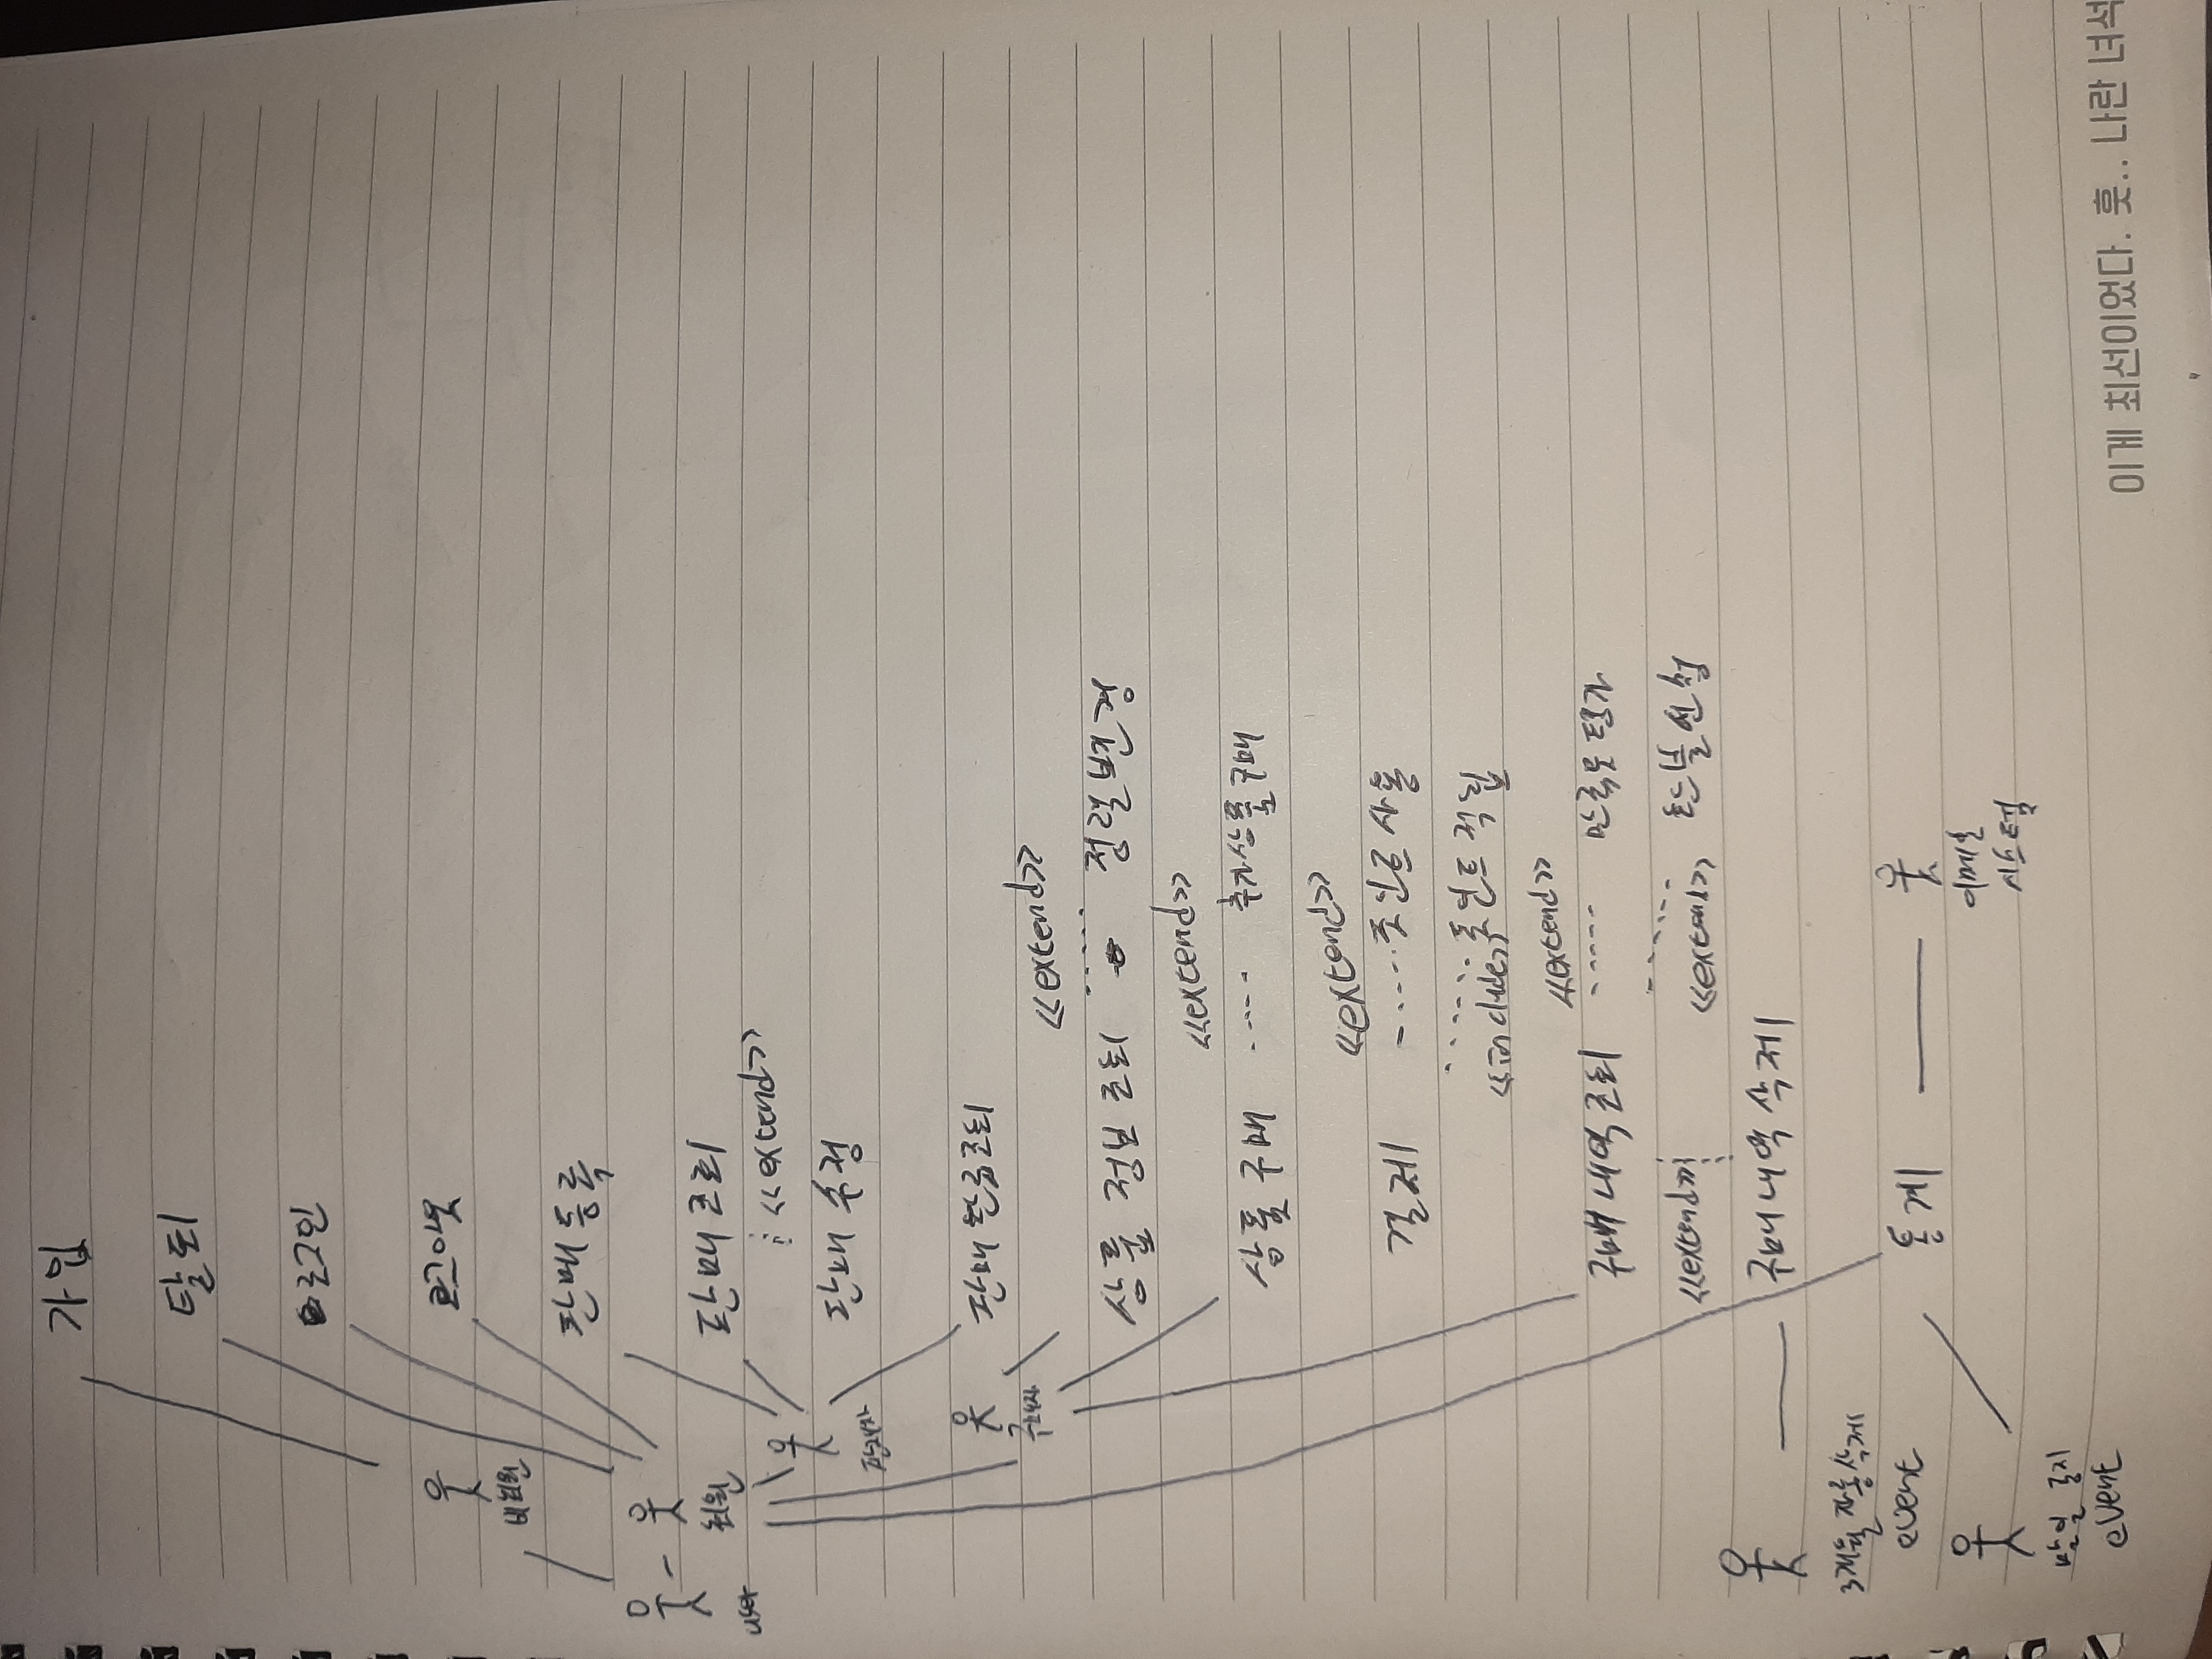 가입
탈퇴
로그인
로그아웃
비회원
판매 등록
user
회원
판매 조회
<<extend>>
판매 수정
판매자
판매 완료 조회
구매자
<<extend>>
상품 정보 조회 정렬 변경
<<extend>>
상품 구매 추가 상품 구매
<<extend>>
결제 포인트 사용
<<include>> 포인트 적립
<<extend>>
구매 내역 조회 만족도 평가
<<extend>> <<extend>> 환불 신청
구매 내역 삭제
3개월 자동 삭제
event
통계
이메일
시스템
말일 공지
event
이게 최선이었다. 훗.. 나란 녀석